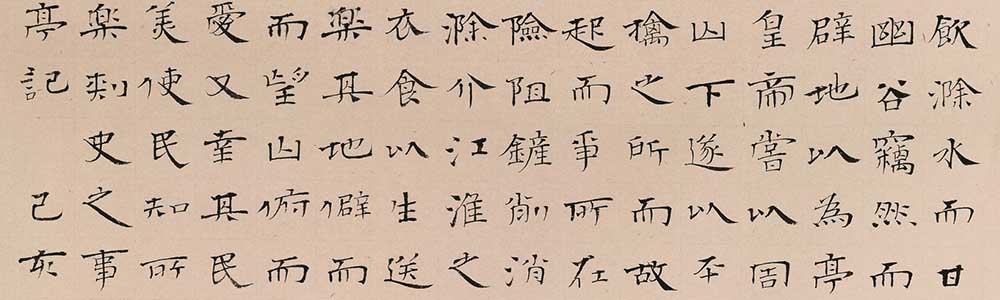 飲滁水而甘
幽谷竊然而
辟地以為亭
皇帝嘗以周
山下遂以平
擒之所而故
起而爭所在
險阻鏟削消
滁介江淮之
衣食以生送
楽其地僻而
而望山俯而
愛又幸其民
美使民知所
楽刺史之事
亭記 己亥